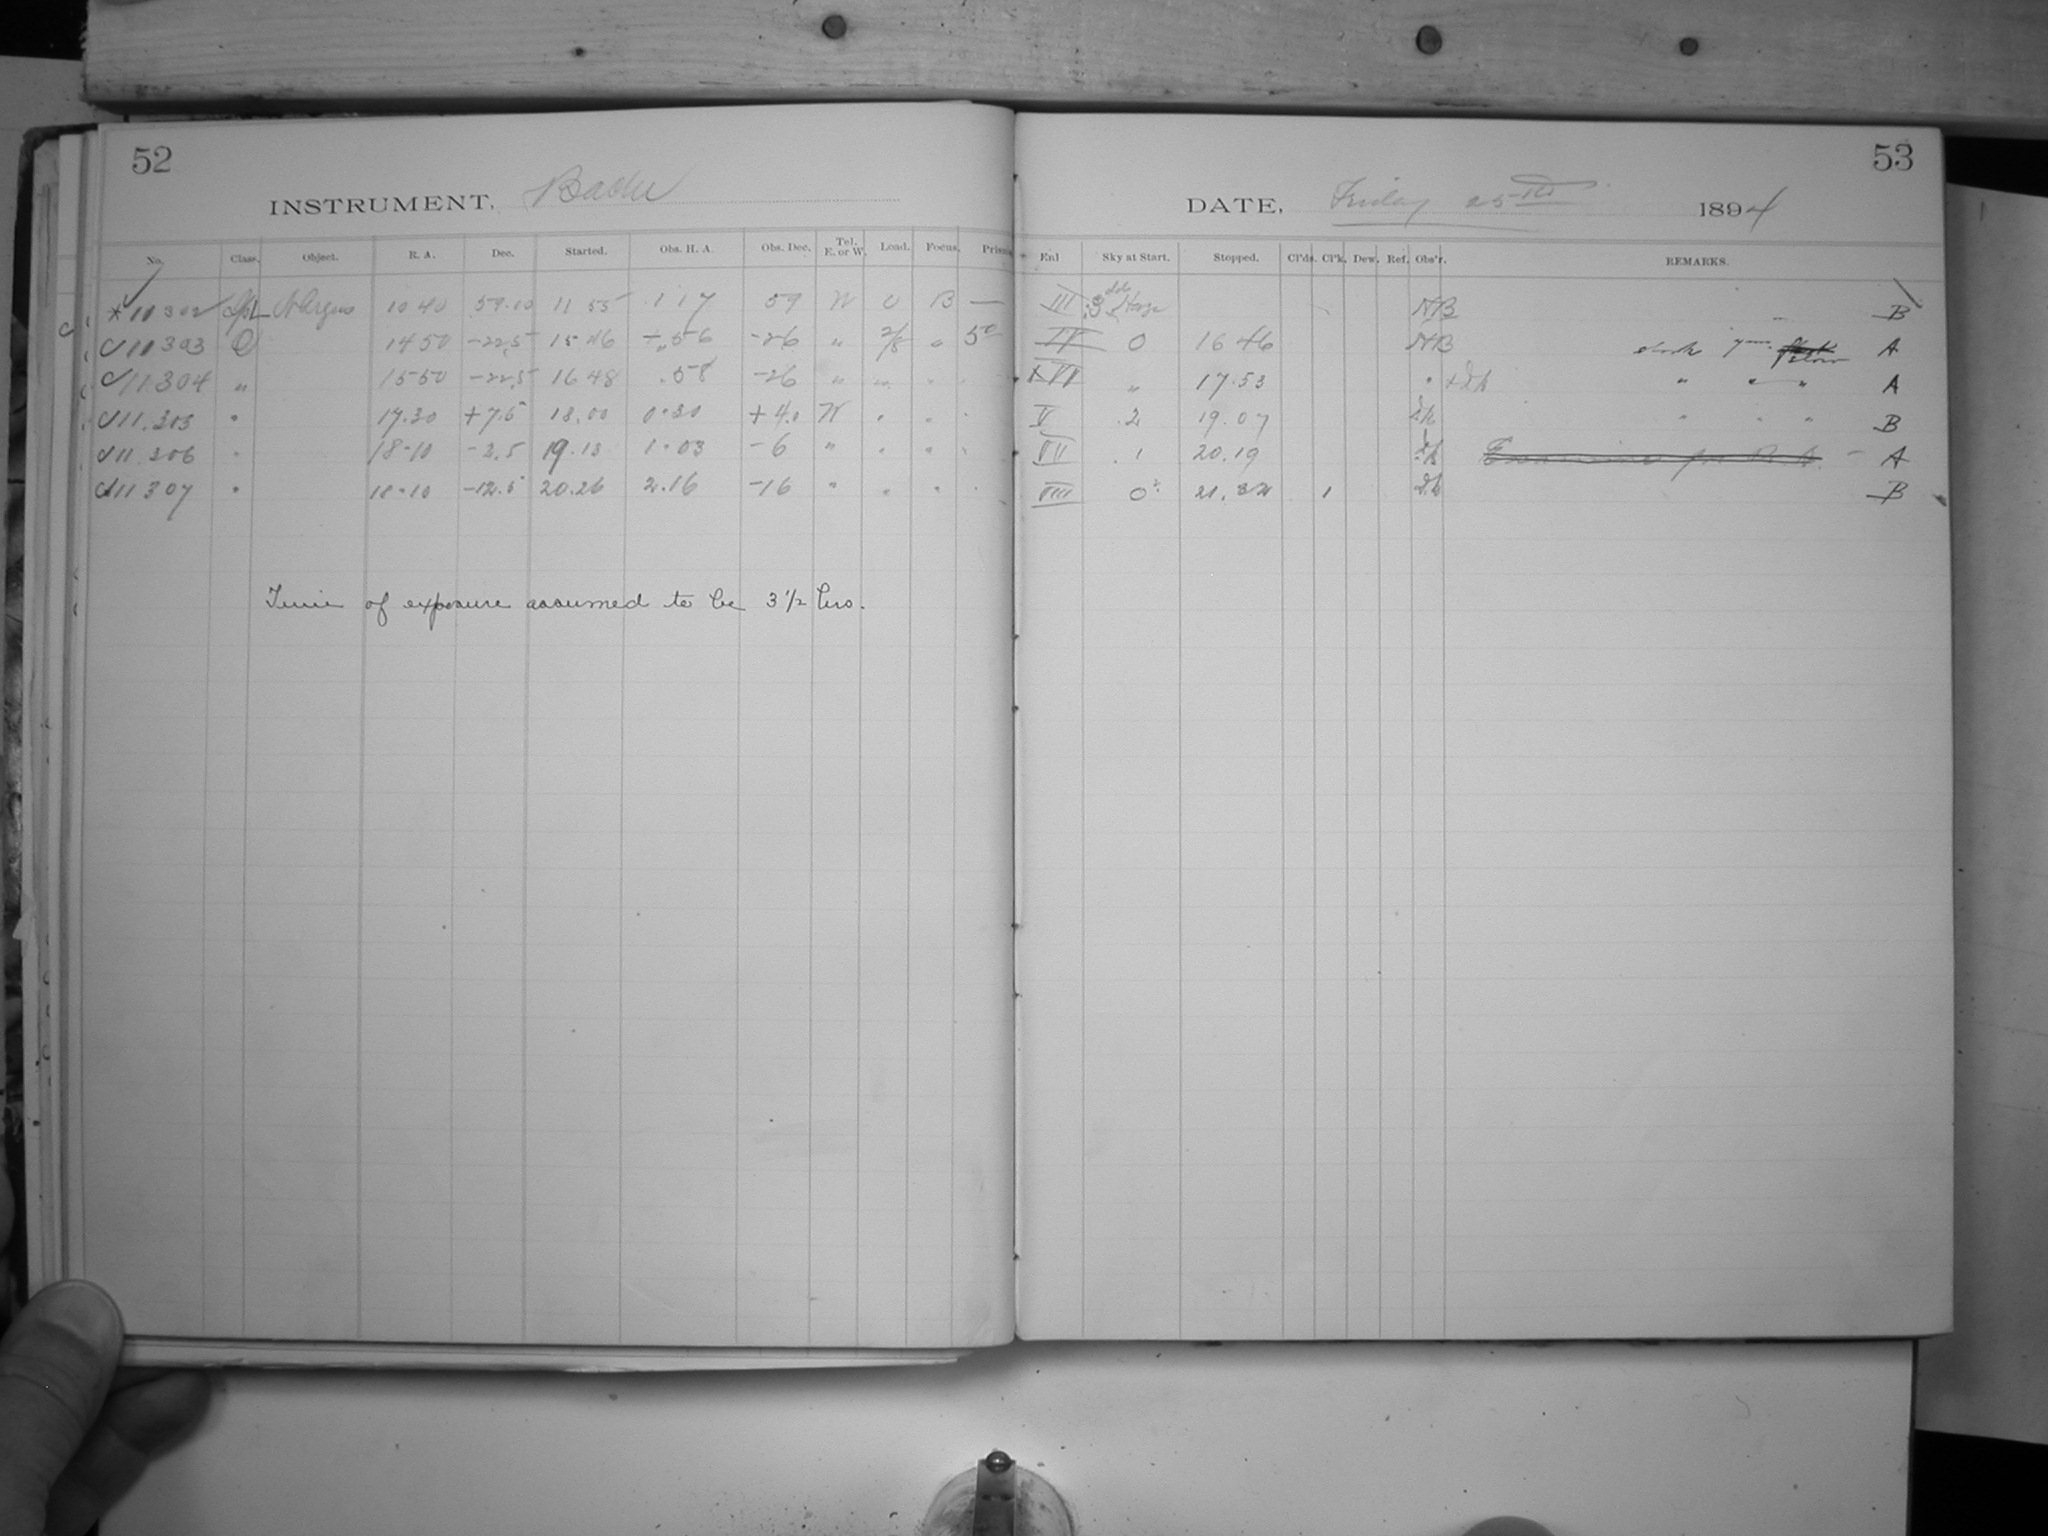 52
INSTRUMENT,
No. Class. Object. R. A. Dec. Started. Obs. H. A. Obs. Dec. Tel. E. or W. Load. Focus. Prisms
11302 10 40 59.10 11 55 1 17 59 W B —
11303 14 50 -22.5 15 46 -26 " "
11.304 " 15 50 -22.5 16 48 .58 -26 " "
11.305 " 17.30 +7.5 18.00 0.30 +4.0 W " "
11.306 " 18-10 -2.5 19.13 1.03 -6 " " "
11307 " 18-10 -12.5 20.26 2.16 -16 " " "
Time of exposure assumed to be 3 1/2 hrs.
53
DATE, Friday 25th 1894
Enl Sky at Start. Stopped. Cl'ds. Cl'k. Dew. Ref. Obs'r. REMARKS.
III Haze NB B
IV 0 16 46 NB clock slow A
VI " 17.53 " " " " A
V 2 19.07 " " " B
VII 1 20.19 A
VIII 0 21.32 1 B